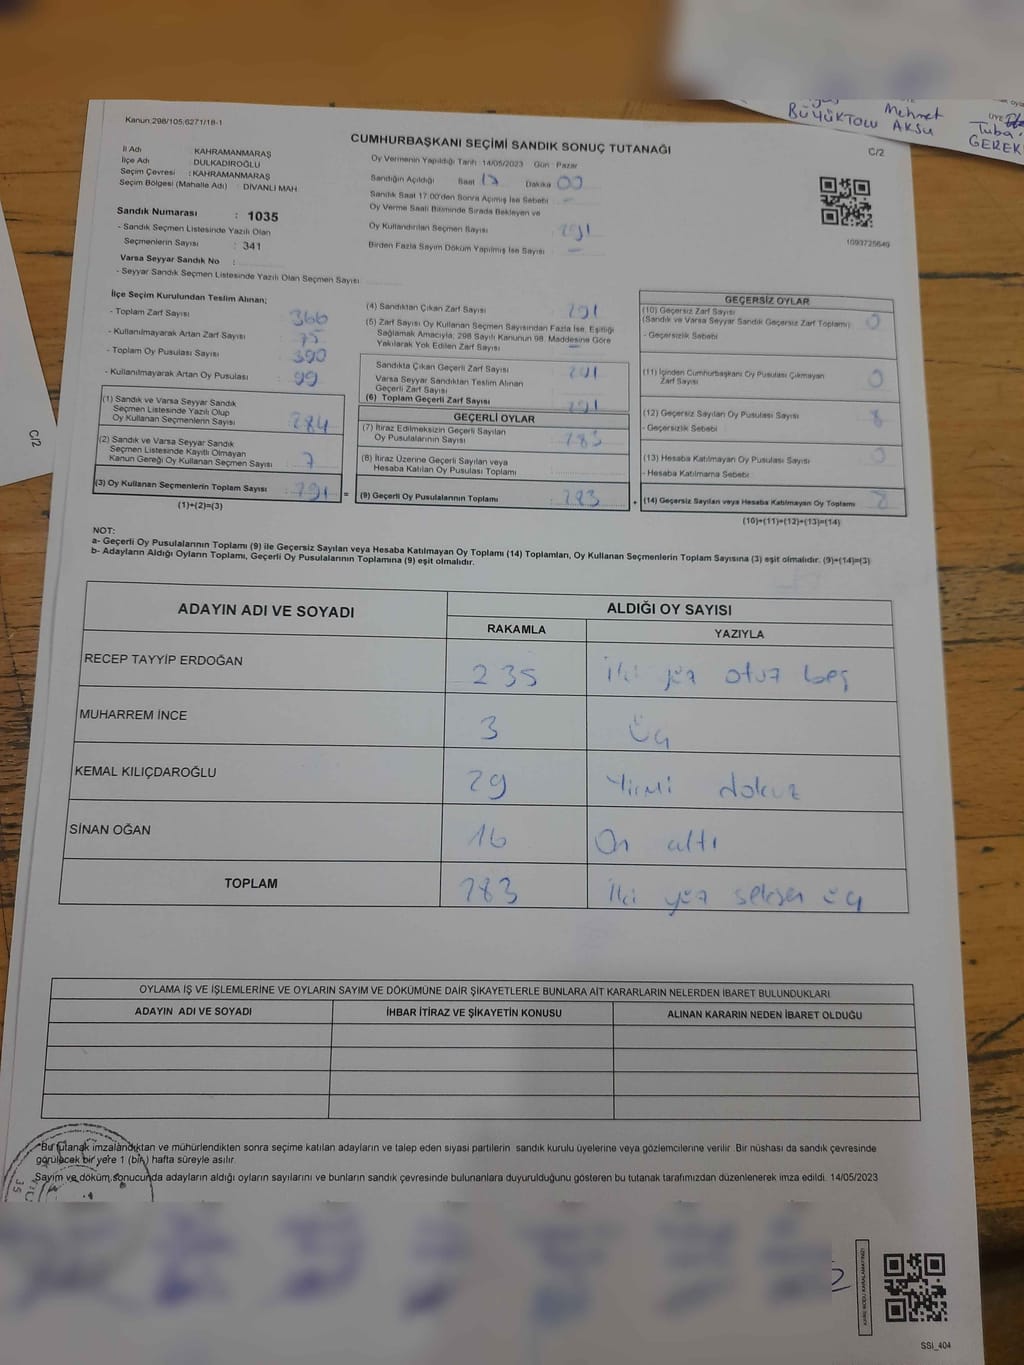 BÜYÜKTOLU
Mehmet
AKSU
ÜYE
Tuba
GEREK
C/2
Kanun:298/105;6271/18-1
CUMHURBAŞKANI SEÇİMİ SANDIK SONUÇ TUTANAĞI
C/2
İl Adı : KAHRAMANMARAŞ
İlçe Adı : DULKADİROĞLU
Seçim Çevresi : KAHRAMANMARAŞ
Seçim Bölgesi (Mahalle Adı) : DİVANLI MAH.
Sandık Numarası : 1035
- Sandık Seçmen Listesinde Yazılı Olan
Seçmenlerin Sayısı : 341
Varsa Seyyar Sandık No :
- Seyyar Sandık Seçmen Listesinde Yazılı Olan Seçmen Sayısı
Oy Vermenin Yapıldığı Tarih 14/05/2023 Gün : Pazar
Sandığın Açıldığı Saat 17 Dakika 00
Sandık Saat 17:00'den Sonra Açılmış İse Sebebi
Oy Verme Saati Bitiminde Sırada Bekleyen ve
Oy Kullandırılan Seçmen Sayısı 291
Birden Fazla Sayım Döküm Yapılmış İse Sayısı : -
1093725649
İlçe Seçim Kurulundan Teslim Alınan;
- Toplam Zarf Sayısı : 366
- Kullanılmayarak Artan Zarf Sayısı : 75
- Toplam Oy Pusulası Sayısı : 390
- Kullanılmayarak Artan Oy Pusulası : 99
(1) Sandık ve Varsa Seyyar Sandık
Seçmen Listesinde Yazılı Olup
Oy Kullanan Seçmenlerin Sayısı : 284
(2) Sandık ve Varsa Seyyar Sandık
Seçmen Listesinde Kayıtlı Olmayan
Kanun Gereği Oy Kullanan Seçmen Sayısı : 7
(3) Oy Kullanan Seçmenlerin Toplam Sayısı : 291 =
(1)+(2)=(3)
(4) Sandıktan Çıkan Zarf Sayısı : 291
(5) Zarf Sayısı Oy Kullanan Seçmen Sayısından Fazla İse, Eşitliği
Sağlamak Amacıyla, 298 Sayılı Kanunun 98. Maddesine Göre
Yakılarak Yok Edilen Zarf Sayısı : -
Sandıkta Çıkan Geçerli Zarf Sayısı : 291
Varsa Seyyar Sandıktan Teslim Alınan
Geçerli Zarf Sayısı
(6) Toplam Geçerli Zarf Sayısı : 291
GEÇERLİ OYLAR
(7) İtiraz Edilmeksizin Geçerli Sayılan
Oy Pusulalarının Sayısı : 283
(8) İtiraz Üzerine Geçerli Sayılan veya
Hesaba Katılan Oy Pusulası Toplamı
(9) Geçerli Oy Pusulalarının Toplamı : 283 +
GEÇERSİZ OYLAR
(10) Geçersiz Zarf Sayısı
(Sandık ve Varsa Seyyar Sandık Geçersiz Zarf Toplamı) : 0
- Geçersizlik Sebebi
(11) İçinden Cumhurbaşkanı Oy Pusulası Çıkmayan
Zarf Sayısı : 0
(12) Geçersiz Sayılan Oy Pusulası Sayısı : 8
- Geçersizlik Sebebi
(13) Hesaba Katılmayan Oy Pusulası Sayısı : 0
- Hesaba Katılmama Sebebi
(14) Geçersiz Sayılan veya Hesaba Katılmayan Oy Toplamı : 8
(10)+(11)+(12)+(13)=(14)
NOT:
a- Geçerli Oy Pusulalarının Toplamı (9) ile Geçersiz Sayılan veya Hesaba Katılmayan Oy Toplamı (14) Toplamları, Oy Kullanan Seçmenlerin Toplam Sayısına (3) eşit olmalıdır. (9)+(14)=(3)
b- Adayların Aldığı Oyların Toplamı, Geçerli Oy Pusulalarının Toplamına (9) eşit olmalıdır.
ADAYIN ADI VE SOYADI ALDIĞI OY SAYISI
RAKAMLA YAZIYLA
RECEP TAYYİP ERDOĞAN 235 İki yüz otuz beş
MUHARREM İNCE 3 Üç
KEMAL KILIÇDAROĞLU 29 Yirmi dokuz
SİNAN OĞAN 16 On altı
TOPLAM 283 İki yüz seksen üç
OYLAMA İŞ VE İŞLEMLERİNE VE OYLARIN SAYIM VE DÖKÜMÜNE DAİR ŞİKAYETLERLE BUNLARA AİT KARARLARIN NELERDEN İBARET BULUNDUKLARI
ADAYIN ADI VE SOYADI İHBAR İTİRAZ VE ŞİKAYETİN KONUSU ALINAN KARARIN NEDEN İBARET OLDUĞU
*Bu tutanak imzalandıktan ve mühürlendikten sonra seçime katılan adayların ve talep eden siyasi partilerin sandık kurulu üyelerine veya gözlemcilerine verilir. Bir nüshası da sandık çevresinde
görülecek bir yere 1 (bir) hafta süreyle asılır.
Sayım ve döküm sonucunda adayların aldığı oyların sayılarını ve bunların sandık çevresinde bulunanlara duyurulduğunu gösteren bu tutanak tarafımızdan düzenlenerek imza edildi. 14/05/2023
KARE KODU KARALAMAYINIZ!
SSİ_404